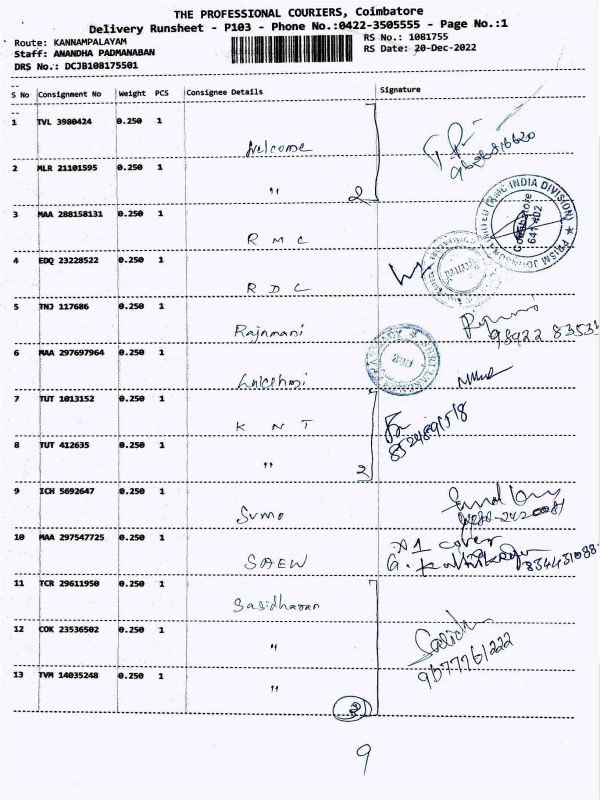 THE PROFESSIONAL COURIERS, Coimbatore
Delivery Runsheet - P103 - Phone No.:0422-3505555 - Page No.:1
Route: KANNAMPALAYAM
RS No.: 1081755
Staff: ANANDHA PADMANABAN
RS Date: 20-Dec-2022
DRS No.: DCJB108175501
S No Consignment No Weight PCS Consignee Details Signature
1 TVL 3980424 0.250 1
Welcome
2 MLR 21101595 0.250 1
" 2
3 MAA 288158131 0.250 1
R M C
4 EDQ 23228522 0.250 1
R D C
5 TNJ 117686 0.250 1
Rajamani
98922 83531
6 MAA 297697964 0.250 1
Lakshmi
7 TUT 1013152 0.250 1
K N T
8 TUT 412635 0.250 1
" 2
9 ICH 5692647 0.250 1
Sumo
10 MAA 297547725 0.250 1
A1 cover
SAEW
11 TCR 29611950 0.250 1
Sasidharan
12 COK 23536502 0.250 1
"
9677761222
13 TVM 14035248 0.250 1
"
9